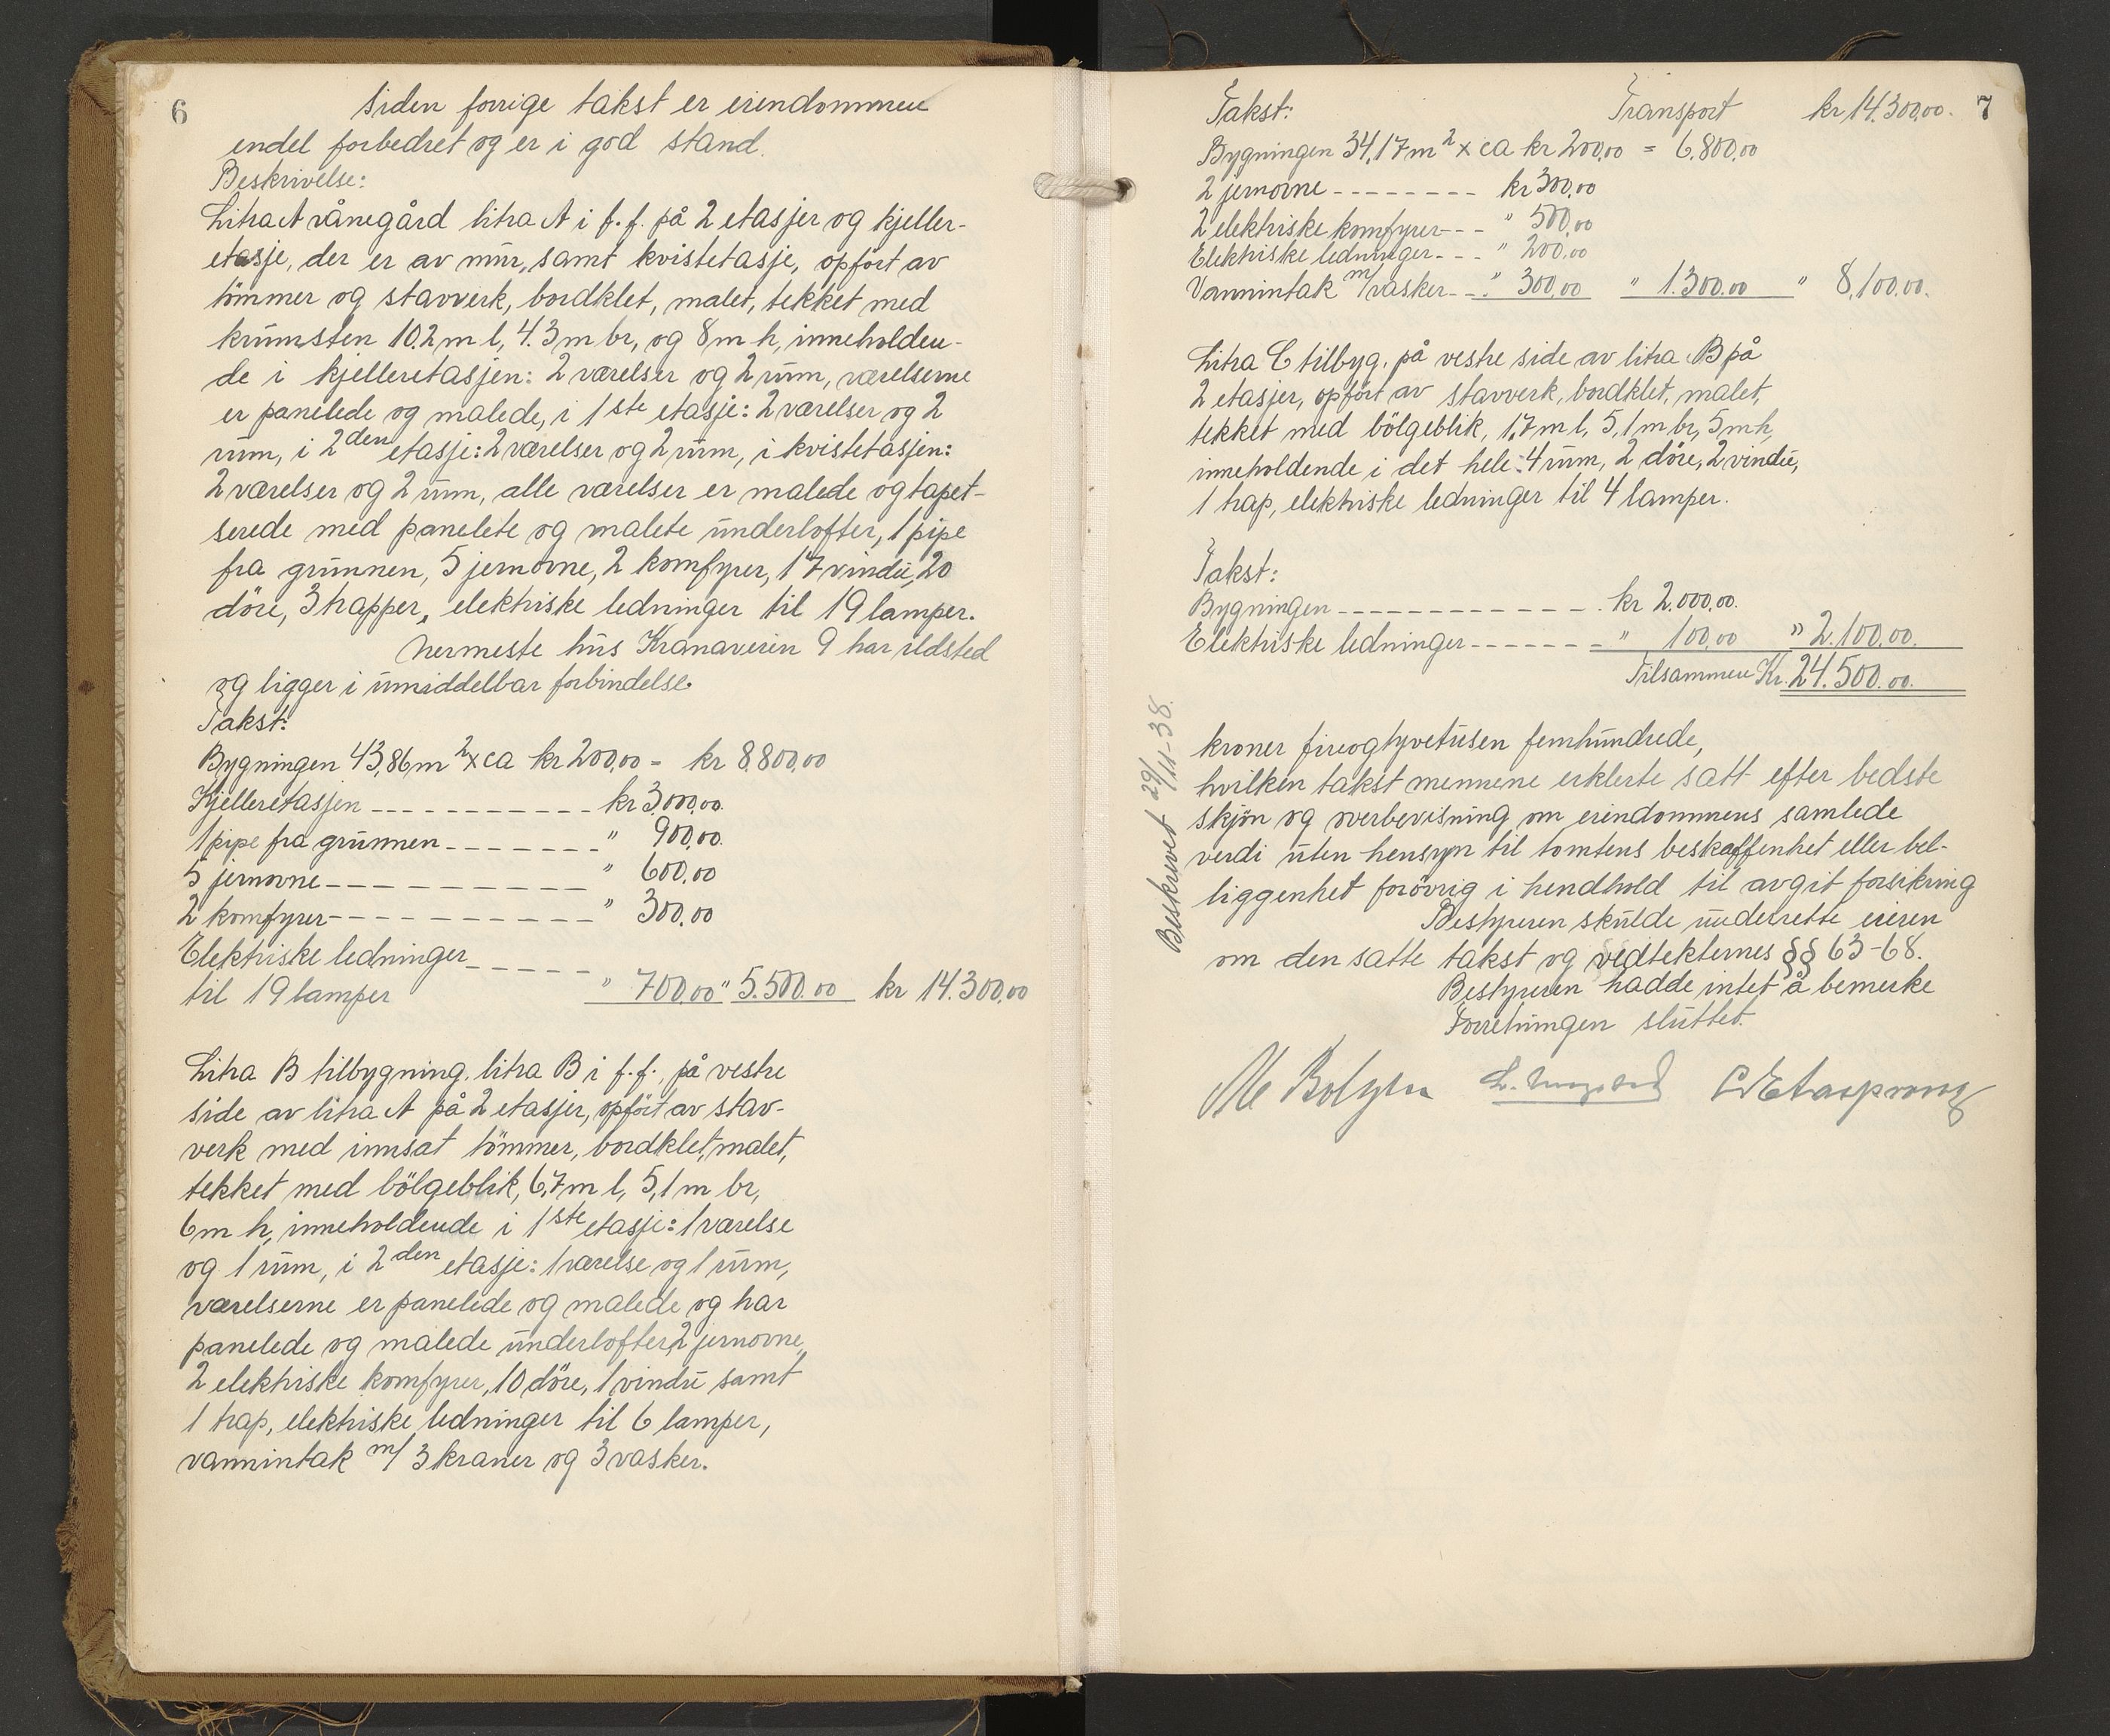 6
Siden forrige takst er eiendommen
endel forbedret og er i god stand.
Beskrivelse:
Litra A vånegård litra A i f.f. på 2 etasjer og kjeller-
etasje, der er av mūr, samt kvistetasje, opfört av
tömmer og stavverk, bordklet, malet, tekket med
krūmsten 10.2 m l, 4.3 m br, og 8 m h, inneholden-
de i kjelleretasjen: 2 værelser og 2 rūm, værelserne
er panelede og malede, i 1ste etasje: 2 værelser og 2
rūm, i 2den etasje: 2 værelser og 2 rūm, i kvistetasjen:
2 værelser og 2 rūm, alle værelser er malede og tapet-
serede med panelete og malete ūnderlofter, 1 pipe
fra grūnnen, 5 jernovne, 2 komfyrer, 17 vindū, 20
döre, 3 trapper, elektriske ledninger til 19 lamper.
Nermeste hūs Kranaveien 9 har ildsted
og ligger i ūmiddelbar forbindelse.
Takst:
Bygningen 43,86 m2 x ca kr 200,00 = kr 8.800,00
Kjelleretasjen - - - - - - - - - - - kr 3.000,00.
1 pipe fra grūnnen - - - - - - - - " 900,00.
5 jernovne - - - - - - - - - - - " 600,00
2 komfyrer - - - - - - - - - - - " 300,00
Elektriske ledninger - - - - -
til 19 lamper " 700,00 " 5.500.00 kr 14.300,00
Litra B tilbygning. litra B i f.f. på vestre
side av litra A på 2 etasjer, opfört av stav-
verk med innsat tömmer, bordklet, malet,
tekket med bölgeblik, 6,7 m l, 5,1 m br,
6 m h, inneholdende i 1ste etasje: 1 værelse
og 1 rūm, i 2den etasje: 1 værelse og 1 rūm,
værelserne er panelede og malede og har
panelede og malede ūnderlofter, 2 jernovne,
2 elektriske komfyrer, 10 döre, 1 vindū samt
1 trap, elektriske ledninger til 6 lamper,
vannintak m/ 3 kraner og 3 vasker.
Takst: Transport kr 14.300,00. 7
Bygningen 34,17 m2 x ca kr 200,00 = 6.800,00
2 jernovne - - - - - - - - kr 300,00
2 elektriske komfyrer - - - " 500,00
Elektriske ledninger - - - " 200,00
Vannintak m/vasker - - " 300,00 " 1.300.00 " 8.100,00.
Litra C tilbyg. på vestre side av litra B på
2 etasjer, opfört av stavverk, bordklet, malet,
tekket med bölgeblik, 1,7 m l, 5,1 m br, 5 m h,
inneholdende i det hele: 4 rūm, 2 döre, 2 vindū,
1 trap, elektriske ledninger til 4 lamper.
Takst:
Bygningen - - - - - - - - - - - - . kr 2.000,00.
Elektriske ledninger - - - - - - - " 100,00 " 2.100,00.
Tilsammen Kr. 24.500.00.
Beskrevet 29/11-38.
kroner fireogtyvetūsen femhūndrede,
hvilken takst mennene erklerte satt efter bedste
skjön og overbevisning om eiendommens samlede
verdi ūten hensyn til tomtens beskaffenhet eller bel-
liggenhet forövrig i hendhold til avgit forsikring
Bestyreren skūlde ūnderrette eieren
om den satte takst og vedtekternes §§ 63-68.
Bestyreren hadde intet å bemerke
Forretningen slūttet.